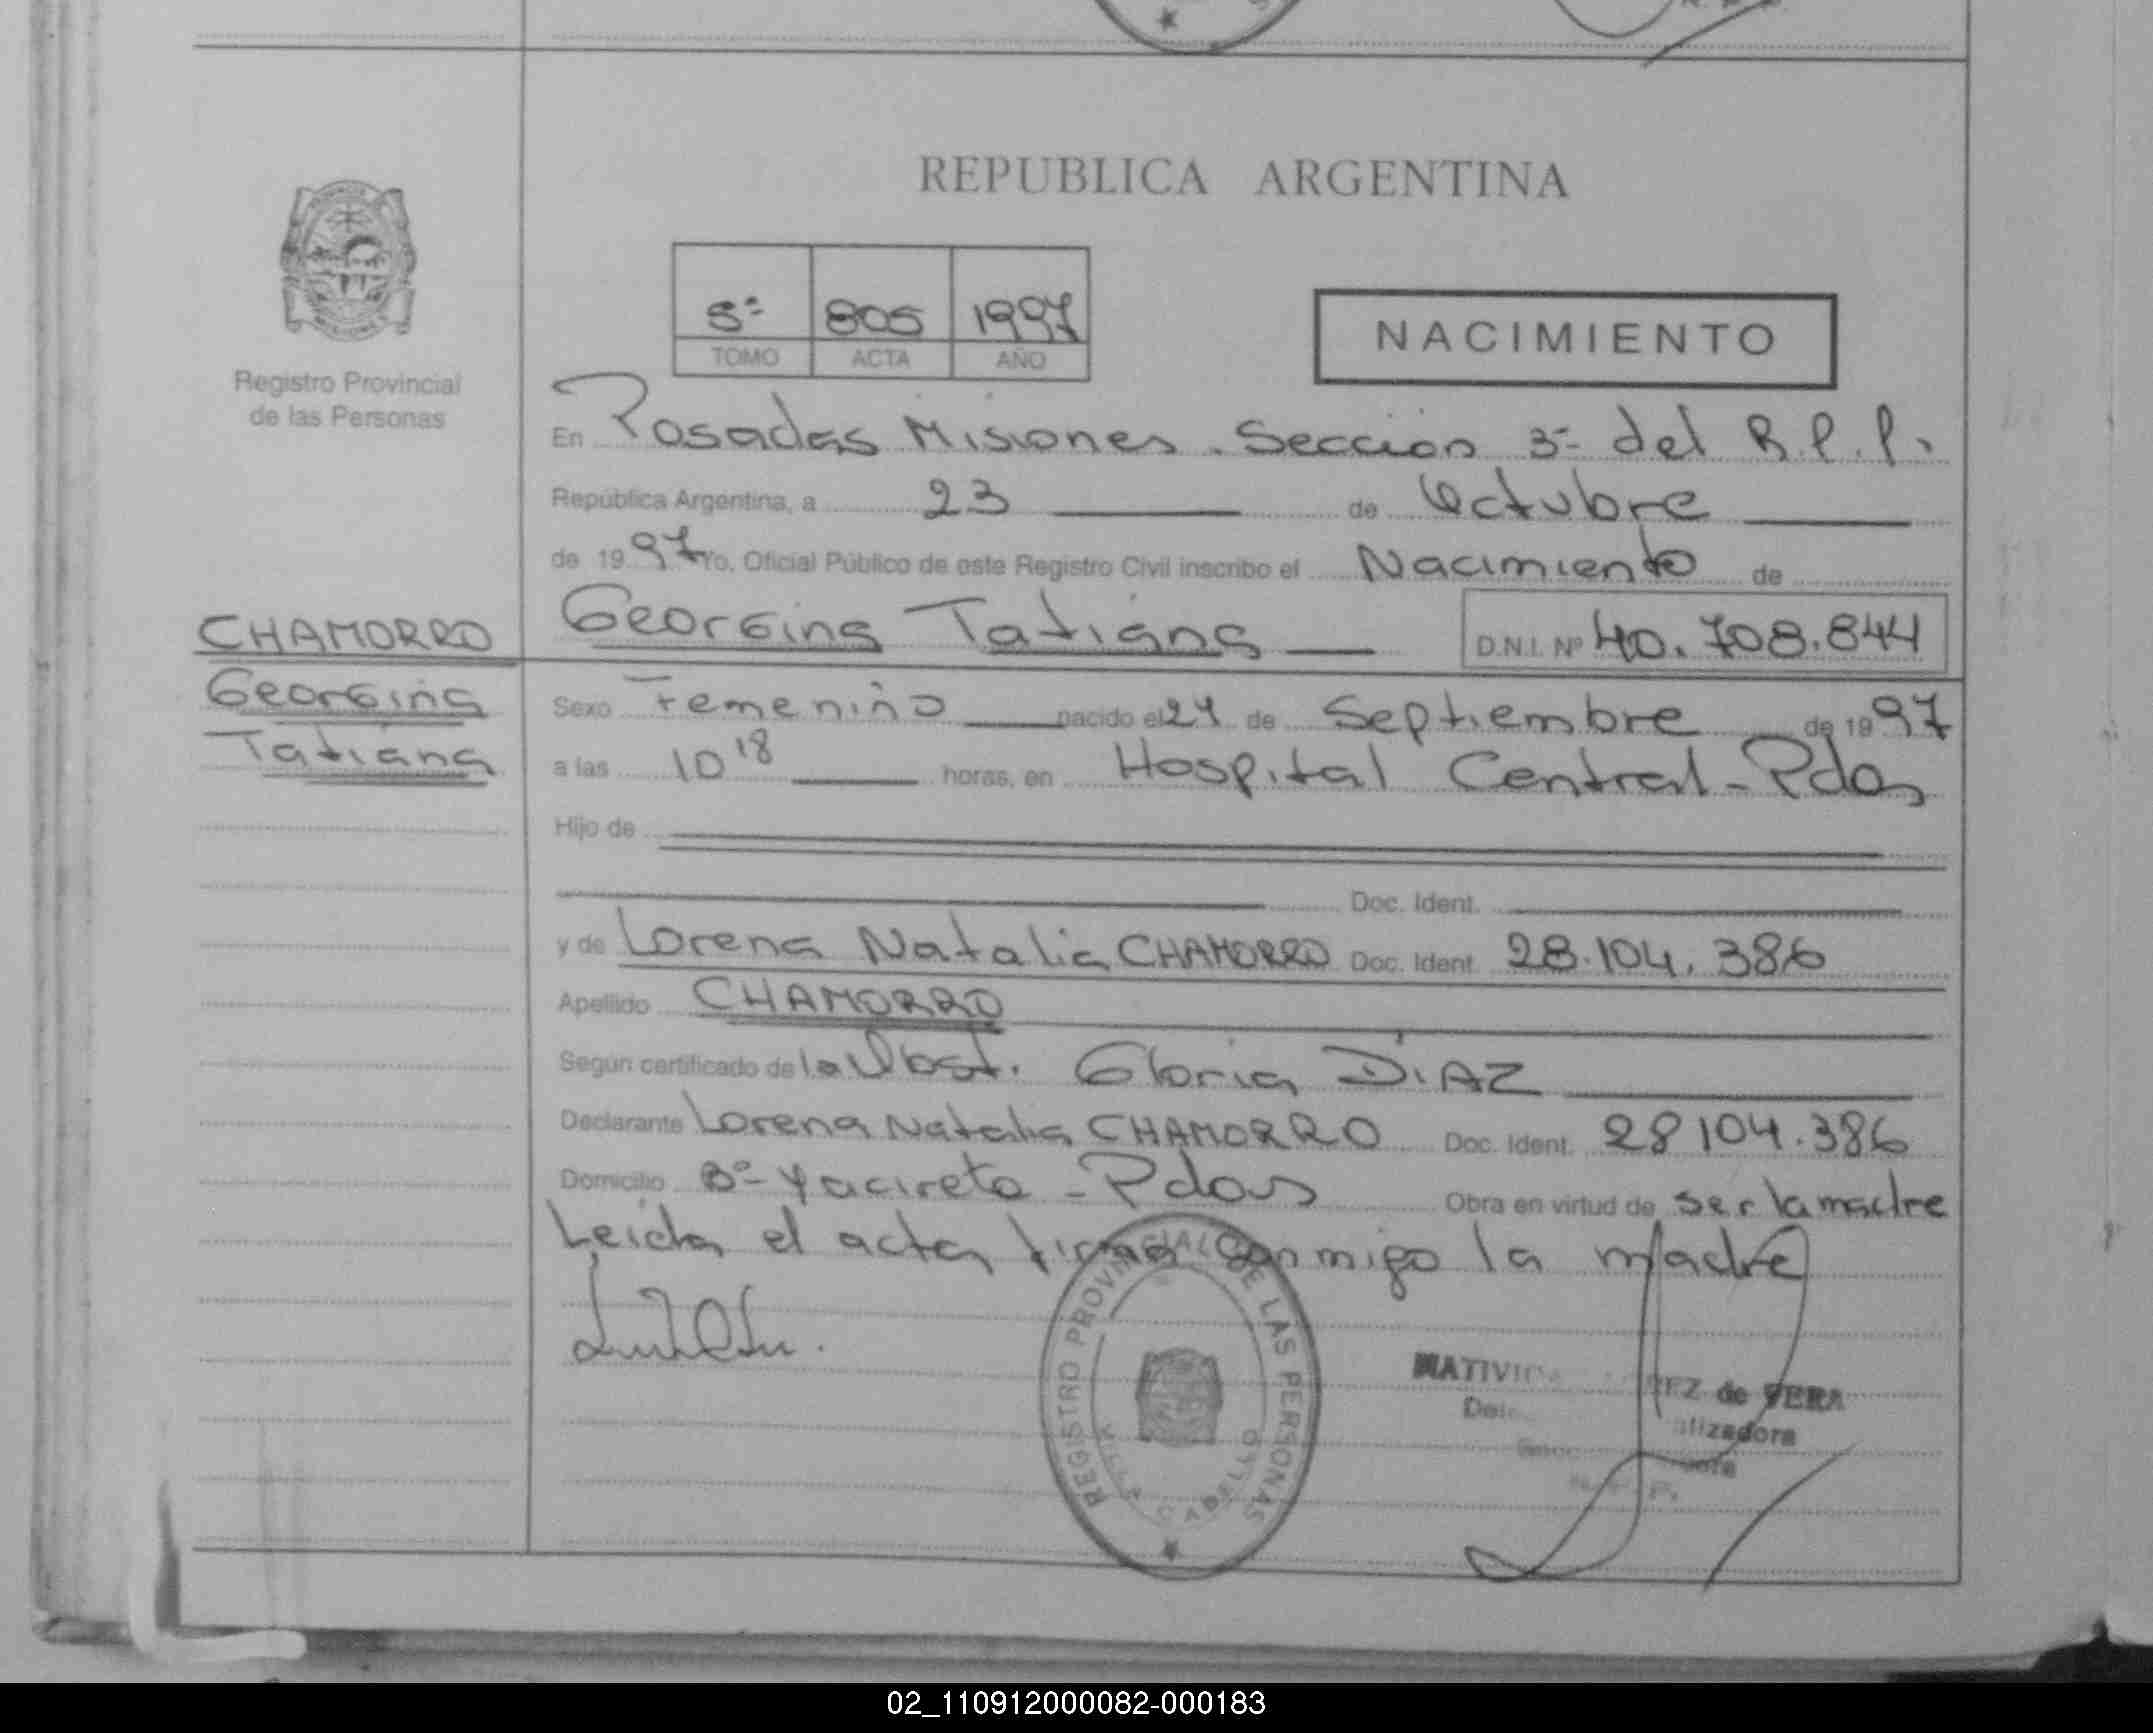 REPUBLICA ARGENTINA
5º 805 1997
TOMO ACTA AÑO
NACIMIENTO
Registro Provincial
de las Personas
En Posadas Misiones. Sección 3ª del R.P.P.
República Argentina, a 23 de Octubre
de 1997 Yo, Oficial Público de este Registro Civil inscribo el Nacimiento de
Georgina Tatiana D.N.I. Nº 40.708.844
CHAMORRO
Georgina
Tatiana
Sexo Femenino nacido el 24 de Septiembre de 1997
a las 10 18 horas, en Hospital Central - Pdas
Hijo de
Doc. Ident.
y de Lorena Natalia CHAMORRO Doc. Ident. 28.104.386
Apellido CHAMORRO
Según certificado de la Obst. Gloria DIAZ
Declarante Lorena Natalia CHAMORRO Doc. Ident. 28104.386
Domicilio Bº Yacireta - Pdas Obra en virtud de ser la madre
Leida el acta firma conmigo la madre
REGISTRO PROVINCIAL DE LAS PERSONAS
VILLA CABELLO
de VERA
02_110912000082-000183